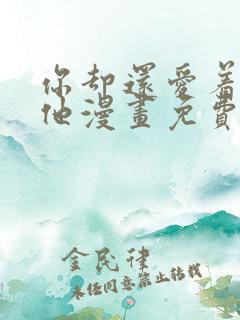 你却還爱着
他漫畫免費
金民律
未经同意禁止转载